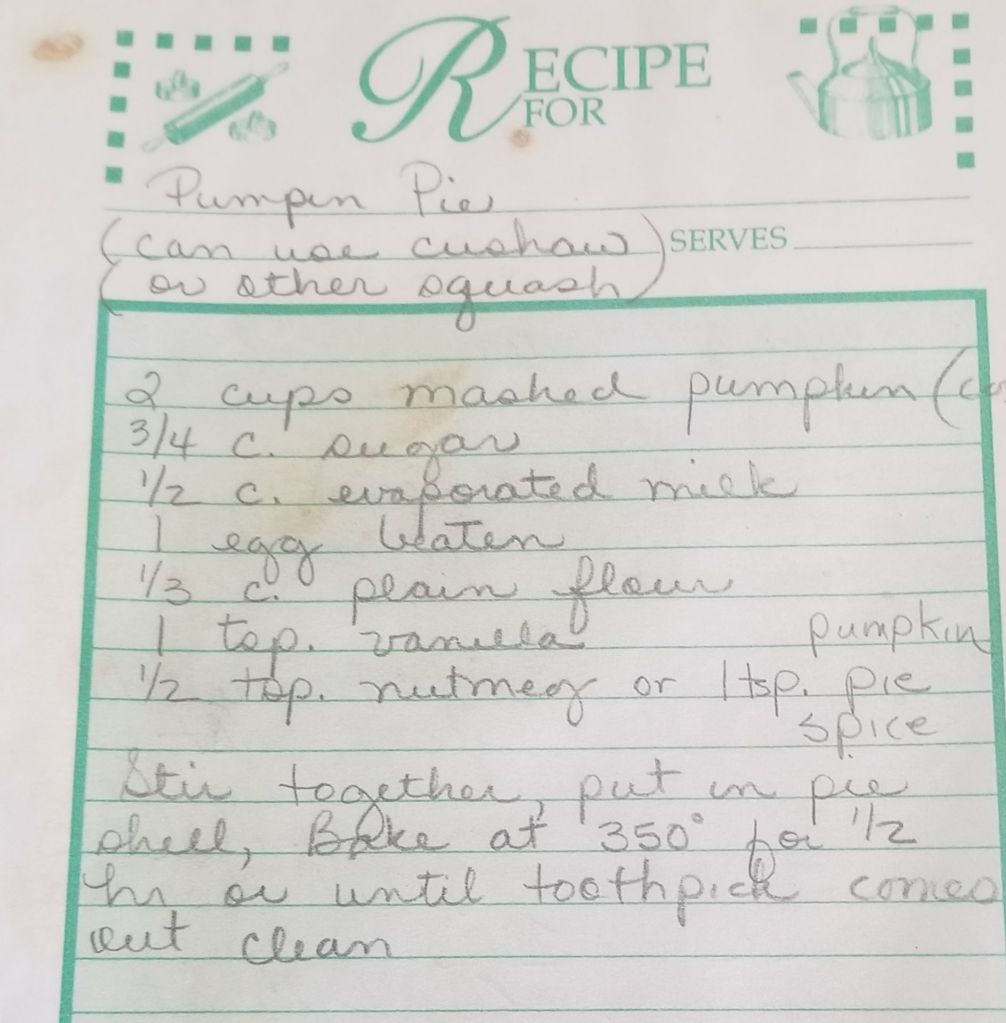 RECIPE
FOR
Pumpin Pie
(can use cushaw) SERVES
(or other squash)
2 cups mashed pumpkin (
3/4 c. sugar
1/2 c. evaporated milk
1 egg beaten
1/3 c. plain flour
1 tsp. vanilla
1/2 tsp. nutmeg or 1 tsp. pumpkin pie
spice
Stir together, put in pie
shell, Bake at 350° for 1/2
hr or until toothpick comes
out clean